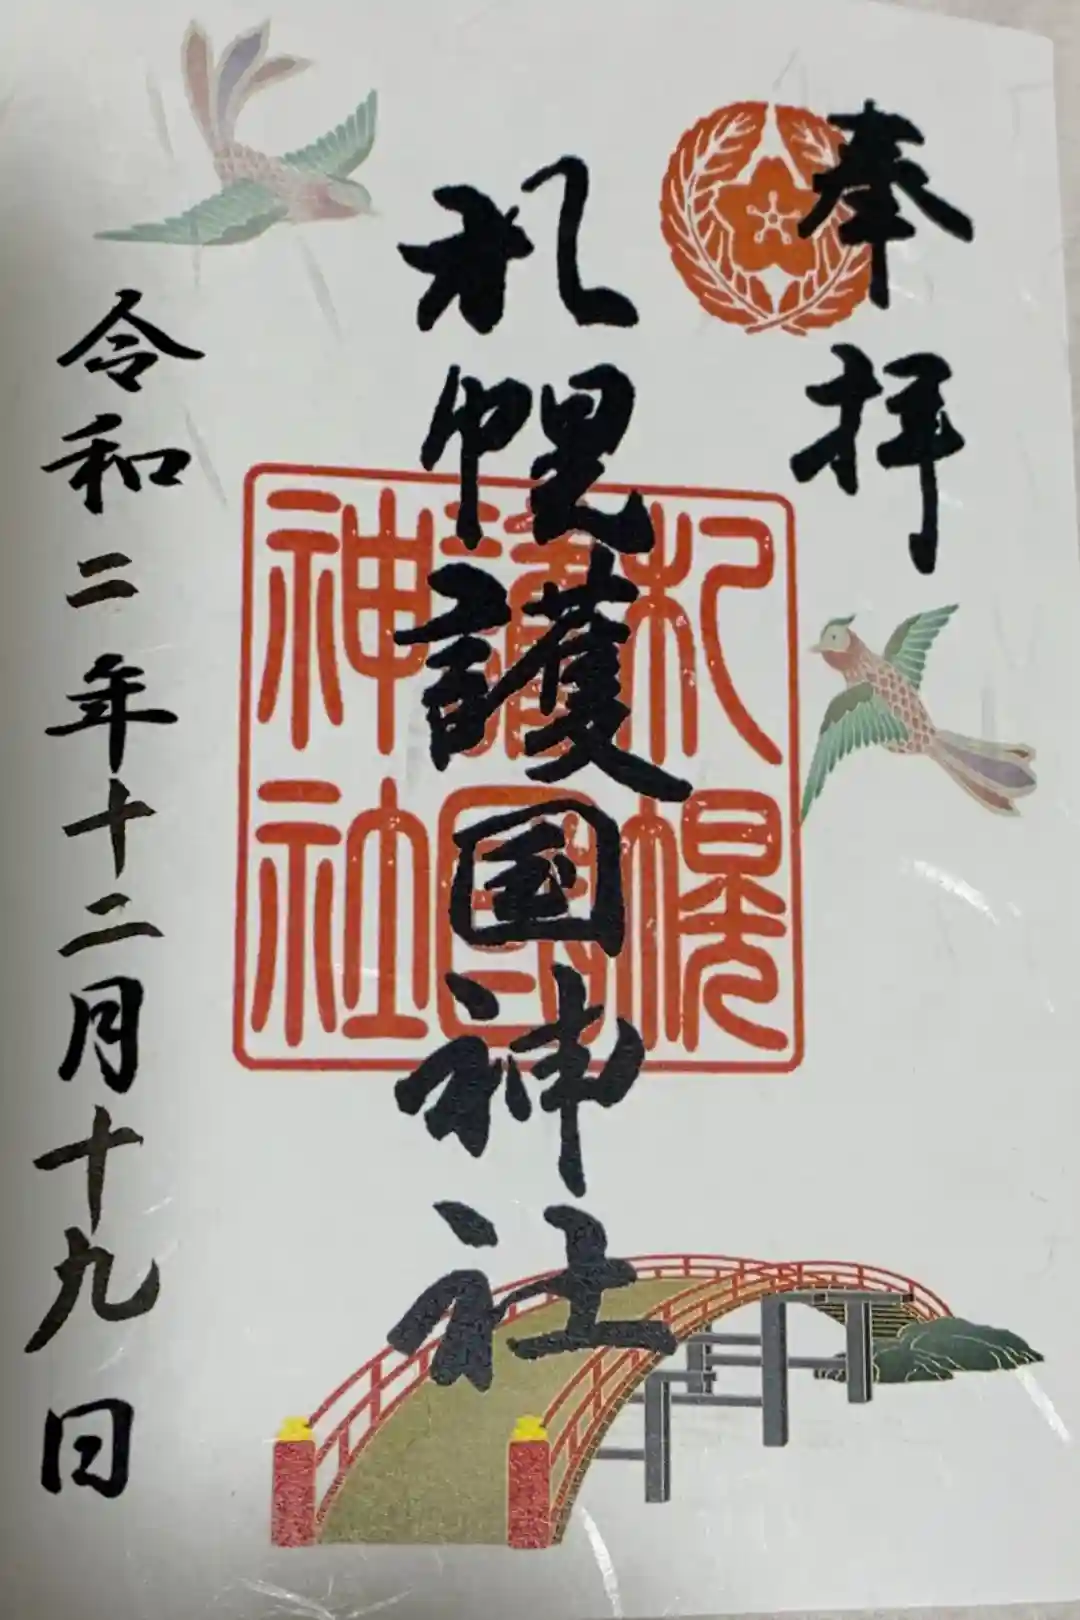 奉拝
札幌護国神社
札幌
護國
神社
令和二年十二月十九日